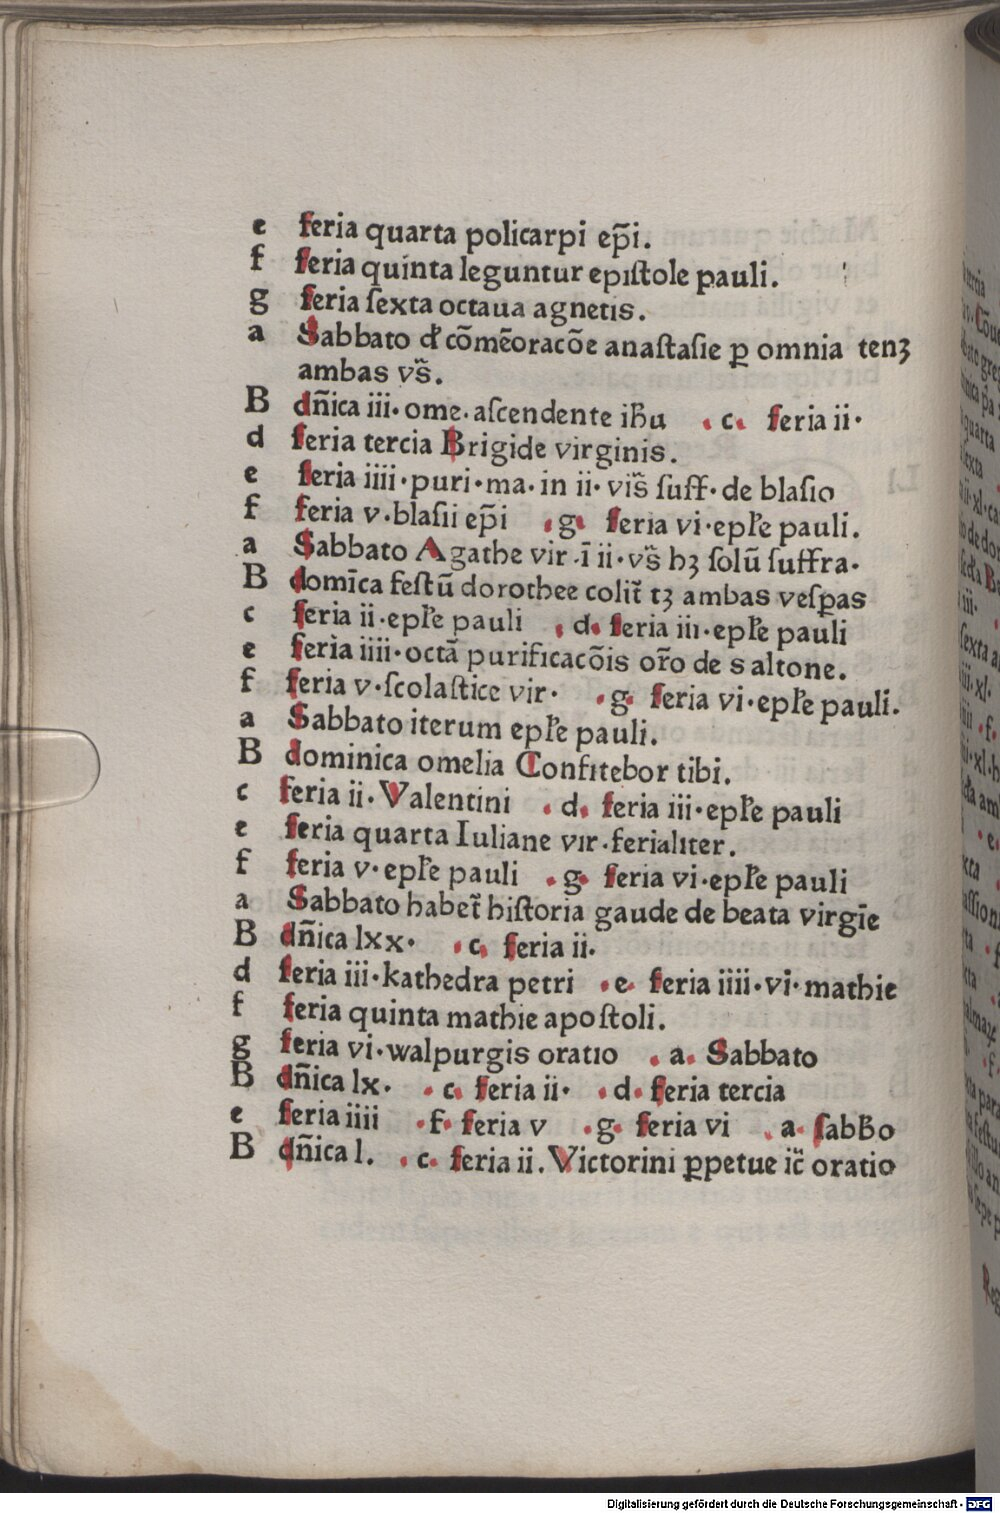 e feria quarta policarpi ep̃i.
f feria quinta leguntur epiſtole pauli.
g feria ſexta octaua agnetis.
a Sabbato đ cõmẽoracõe anaſtaſie ꝑ omnia tenʒ
ambas vs̃.
B dñica iii. ome. aſcendente ihũ .c. feria ii.
d feria tercia Brigide virginis.
e feria iiii.puri.ma. in ii. vis̃ ſuff. de blaſio
f feria v.blaſii ep̃i .g. feria vi.epľe pauli.
a Sabbato Agathe vir.ĩ ii.vs̃ hʒ ſolũ ſuffra.
B domĩca feſtũ dorothee colit̃ tʒ ambas veſꝑas
c feria ii.epľe pauli .d. feria iii.epľe pauli
e feria iiii.octã purificacõis or̃o de saltone.
f feria v.ſcolaſtice vir. .g. feria vi.epľe pauli.
a Sabbato iterum epľe pauli.
B dominica omelia Confitebor tibi.
c feria ii. Valentini .d. feria iii.epľe pauli
e feria quarta Iuliane vir.ferialiter.
f feria v.epľe pauli .g. feria vi.epľe pauli
a Sabbato habet̃ hiſtoria gaude de beata virgiẽ
B dñica lxx. .c. feria ii.
d feria iii.kathedra petri .e. feria iiii.vi. mathie
f feria quinta mathie apoſtoli.
g feria vi.walpurgis oratio .a. Sabbato
B dñica lx. .c. feria ii. .d. feria tercia
e feria iiii .f. feria v .g. feria vi .a. ſabbo
B dñica l. .c. feria ii. Victorini ꝑpetue ic̃ oratio
Digitalisierung gefördert durch die Deutsche Forschungsgemeinschaft - DFG